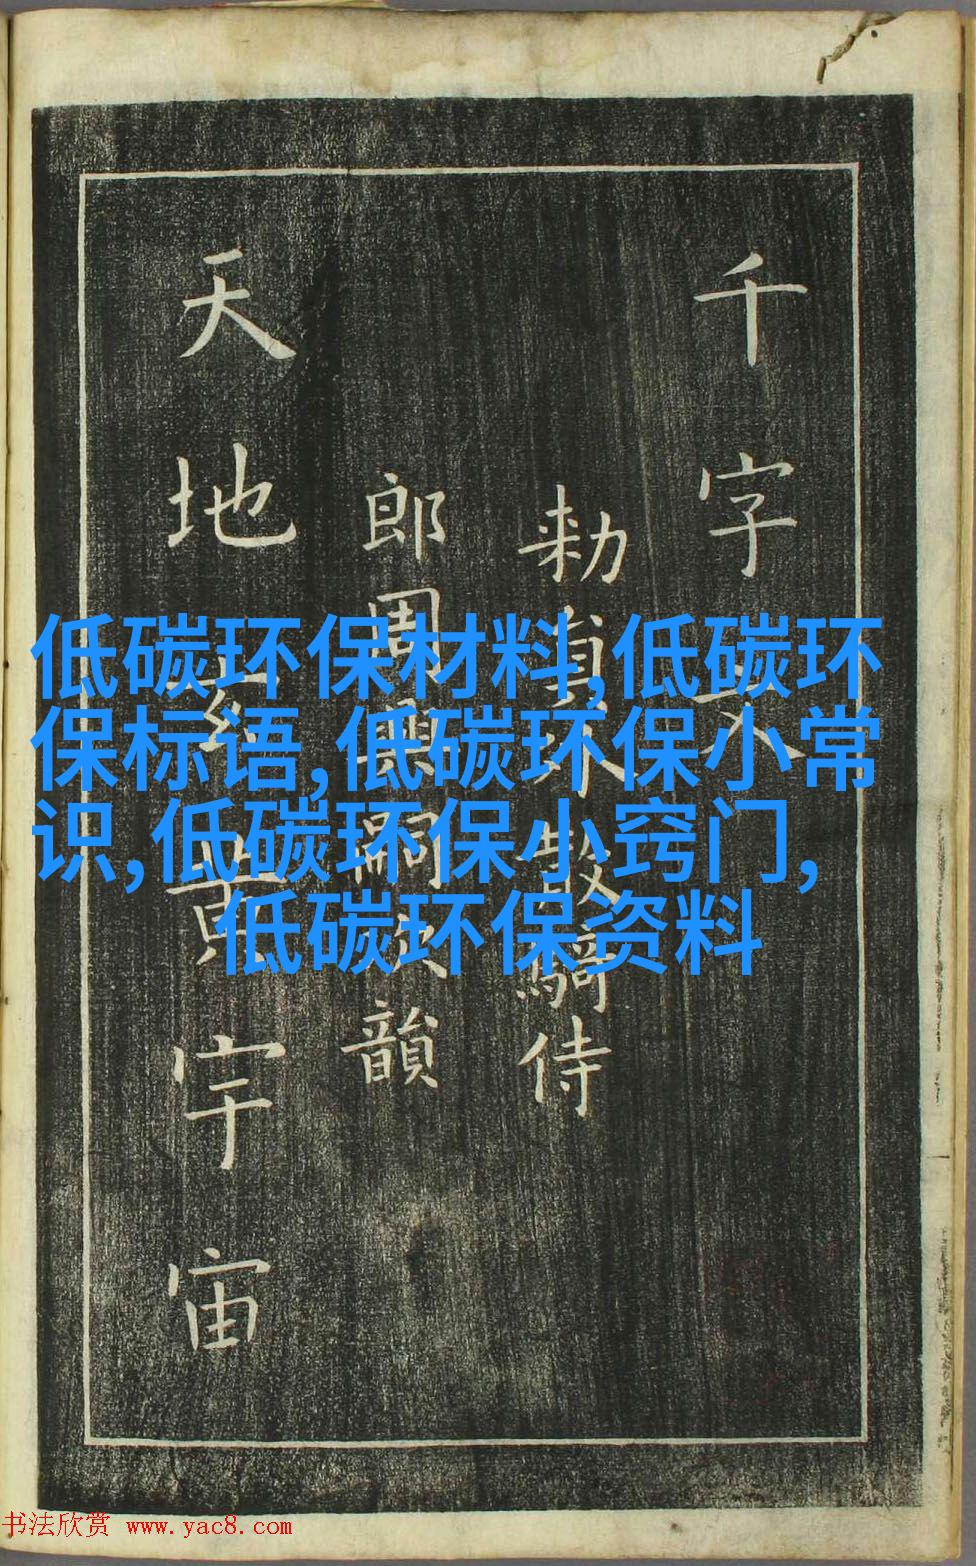 千字文
勑貟外散騎侍
郎周興嗣次韻
天地玄黃宇宙
低碳环保材料,低碳环
保标语,低碳环保小常
识,低碳环保小窍门,
低碳环保资料
书法欣赏 www.yac8.com